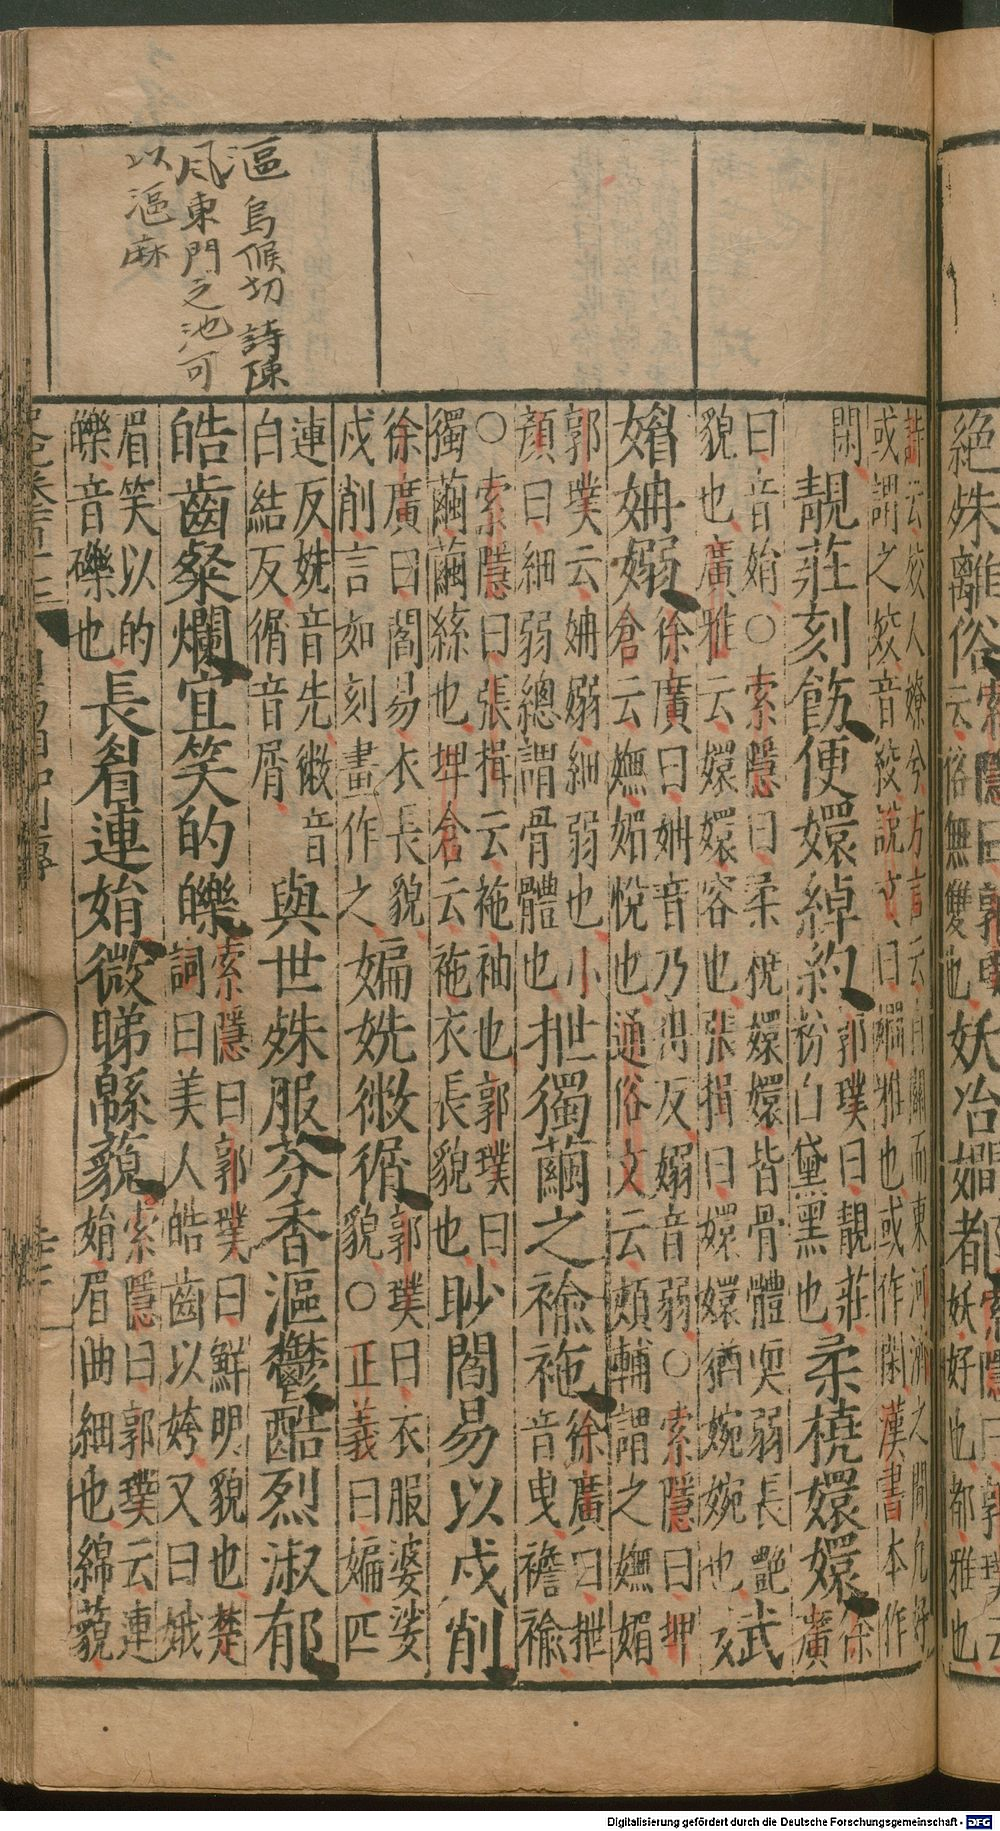 漚烏候切詩陳
風東門之池可
以漚麻
絶殊離俗
妖冶嫺都
詩云姣人嫽兮方言云自關而東河濟之間凡好
或謂之姣音絞說文曰嫺雅也或作閑漢書本作
閑靚莊刻飭便嬛綽約郭璞曰靚莊
粉白黛黑也柔橈嬛嬛徐
廣
曰音娟○索隱曰柔橈嬛嬛皆骨體耎弱長艷
貌也廣雅云嬛嬛容也張揖曰嬛嬛猶婉婉也
娬
媚姌嫋徐廣曰姌音乃冉反嫋音弱○索隱曰埤
倉云嫵媚悅也通俗文云頰輔謂之嫵媚
郭璞云姌嫋細弱也小
顏曰細弱總謂骨體也抴獨繭之褕袘徐廣曰抴
音曳襜褕
○索隱曰張揖云袘袖也郭璞曰
獨繭繭絲也埤倉云袘衣長貌也眇閻易以戌削
徐廣曰閻易衣長貌
戌削言如刻畫作之媥姺徶㣯郭璞曰衣服婆娑
貌○正義曰媥匹
連反姺音先徶音
白結反㣯音屑與世殊服芬香漚鬱酷烈淑郁
皓齒粲爛宜笑的皪索隱曰郭璞曰鮮明貌也楚
詞曰美人皓齒以姱又曰娥
眉笑以的
皪音礫也長眉連娟微睇緜藐索隱曰郭璞云連
娟眉曲細也綿藐
Digitalisierung gefördert durch die Deutsche Forschungsgemeinschaft - DFG